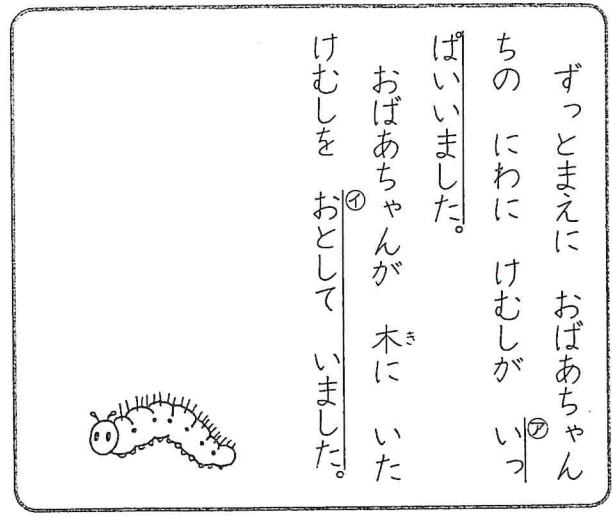 ずっとまえに おばあちゃん
ちの にわに けむしが ㋐いっ
ぱいいました。
おばあちゃんが 木に いた
き
けむしを ㋑おとして いました。